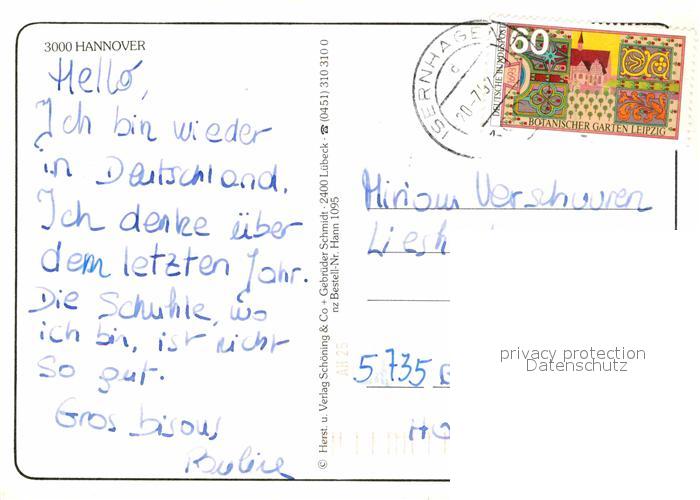 3000 HANNOVER
Hello,
Ich bin wieder
in Deutschland.
Ich denke über
dem letzten Jahr.
Die Schuhle, wo
ich bin, ist nicht
so gut.
Gros bisous
© Herst. u. Verlag Schöning & Co + Gebrüder Schmidt · 2400 Lübeck · ☎ (0451) 310 310 0
nz Bestell-Nr. Hann 1095
AH 25
SERNHAGEN
c
60
DEUTSCHE BUNDESPOST
BOTANISCHER GARTEN LEIPZIG
Miriam Verschuuren
Liesh
5735
HO
privacy protection
Datenschutz